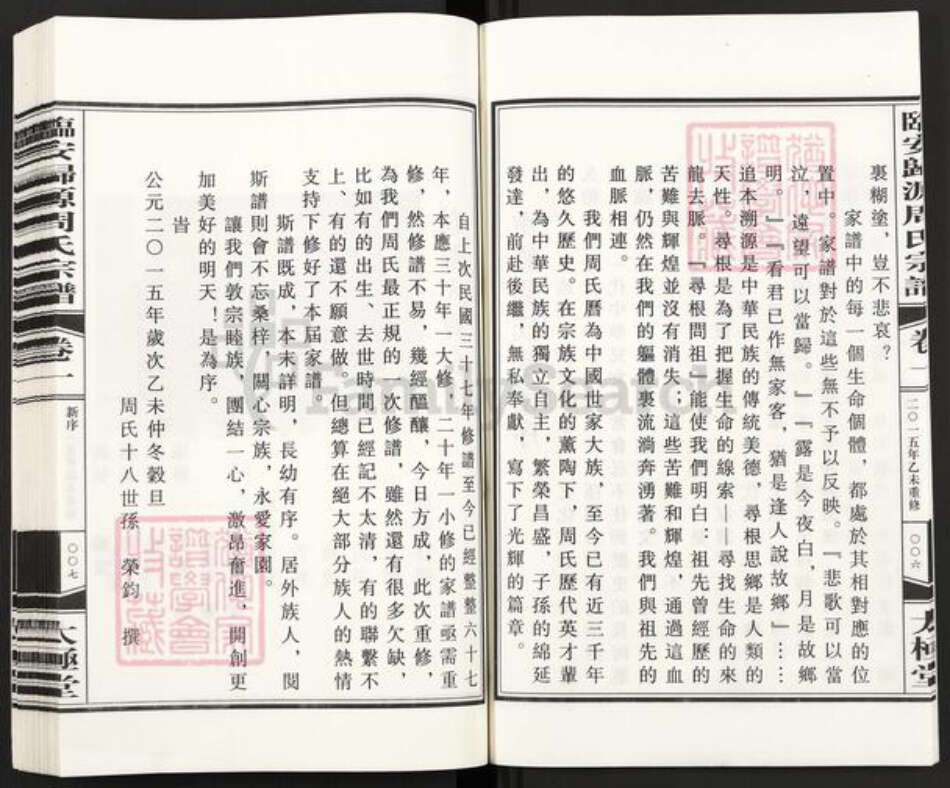 臨安歸源周氏宗譜
卷一
二〇一五年乙未重修
〇〇六
太極堂
裏糊塗，豈不悲哀？
家譜中的每一個生命個體，都處於其相對應的位
置中。家譜對於這些無不予以反映。『悲歌可以當
泣，遠望可以當歸。』『露是今夜白，月是故鄉
明。』『看君已作無家客，猶是逢人說故鄉』……
追本溯源是中華民族的傳統美德，尋根思鄉是人類的
天性。尋根是為了把握生命的線索——尋找生命的來
龍去脈。『尋根問祖』能使我們明白：祖先曾經歷的
苦難與輝煌並沒有消失；這些苦難和輝煌，通過這血
脈，仍然在我們的軀體裏流淌奔湧著。我們與祖先的
血脈相連。
我們周氏曆為中國世家大族，至今已有近三千年
的悠久歷史。在宗族文化的薰陶下，周氏歷代英才輩
出，為中華民族的獨立自主，繁榮昌盛，子孫的綿延
發達，前赴後繼，無私奉獻，寫下了光輝的篇章。
自上次民國三十七年修譜至今已經整整六十七
年，本應三十年一大修，二十年一小修的家譜亟需重
修，然修譜不易，幾經醞釀，今日方成，此次重修，
為我們周氏最正規的一次修譜，雖然還有很多欠缺，
比如有的出生、去世時間已經記不太清，有的聯繫不
上、有的還不願意做。但總算在絕大部分族人的熱情
支持下修好了本屆家譜。
斯譜既成，本末詳明，長幼有序。居外族人，閱
斯譜則會不忘桑梓，關心宗族，永愛家園。
讓我們敦宗睦族，團結一心，激昂奮進，開創更
加美好的明天！是為序。
皆
公元二〇一五年歲次乙未仲冬穀旦
周氏十八世孫　榮鈞　撰
臨安歸源周氏宗譜
卷一
新序
〇〇七
太極堂
FamilySearch